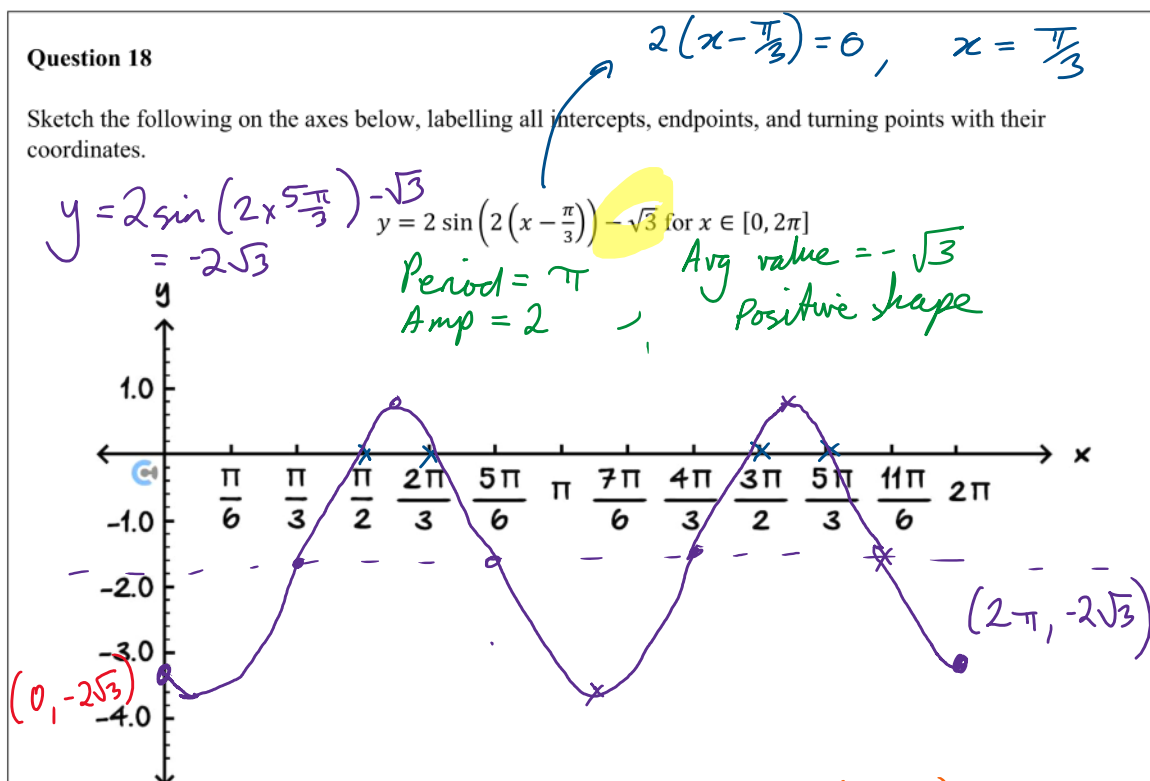 2(x-π/3)=0, x = π/3
Question 18
Sketch the following on the axes below, labelling all intercepts, endpoints, and turning points with their
coordinates.
y = 2sin(2×5π/3) -√3
= -2√3
y = 2 sin(2(x − π/3)) − √3 for x ∈ [0, 2π]
Period = π
Avg value = -√3
Amp = 2 ,
Positive shape
y
1.0
x
π/6 π/3 π/2 2π/3 5π/6 π 7π/6 4π/3 3π/2 5π/3 11π/6 2π
-1.0
-2.0
(2π, -2√3)
-3.0
(0, -2√3)
-4.0